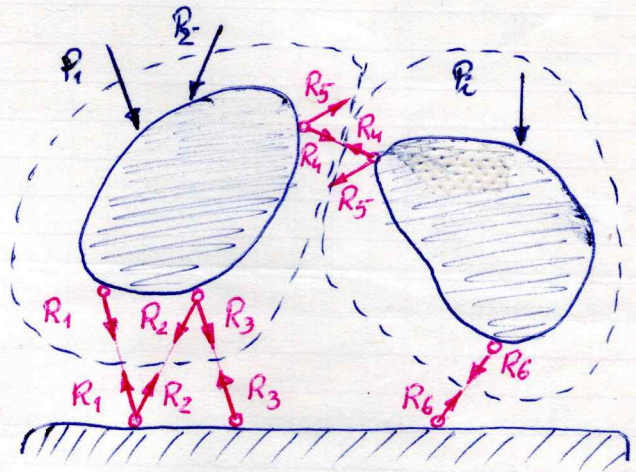 P₁ P₂
Pᵢ
R₅
R₄ R₄
R₅
R₁ R₂ R₃
R₁ R₂ R₃
R₆
R₆